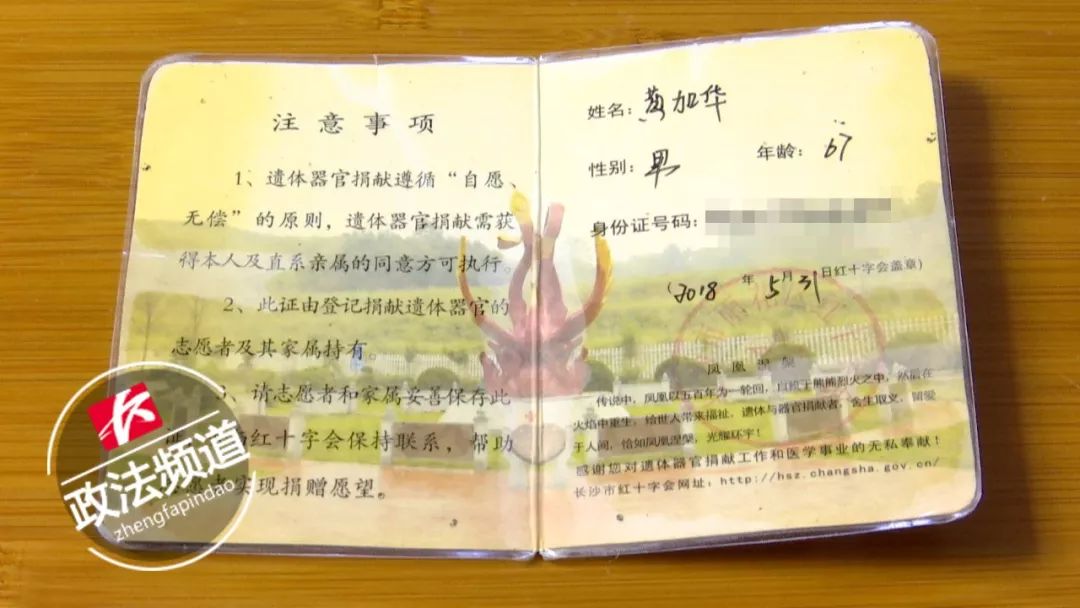 注意事项
1、遗体器官捐献遵循“自愿、
无偿”的原则，遗体器官捐献需获
得本人及直系亲属的同意方可执行。
2、此证由登记捐献遗体器官的
志愿者及其家属持有。
3、请志愿者和家属妥善保存此
红十字会保持联系，帮助
实现捐赠愿望。
姓名：黄加华
性别：男 年龄：67
身份证号码：
(2018年5月31日红十字会盖章)
凤凰涅槃
传说中，凤凰以五百年为一轮回，自投于熊熊烈火之中，然后在
火焰中重生，给世人带来福祉。遗体与器官捐献者，舍生取义，留爱
于人间，恰如凤凰涅槃，光耀环宇！
感谢您对遗体器官捐献工作和医学事业的无私奉献！
长沙市红十字会网址：http://hsz.changsha.gov.cn/
政法频道
zhengfapindao